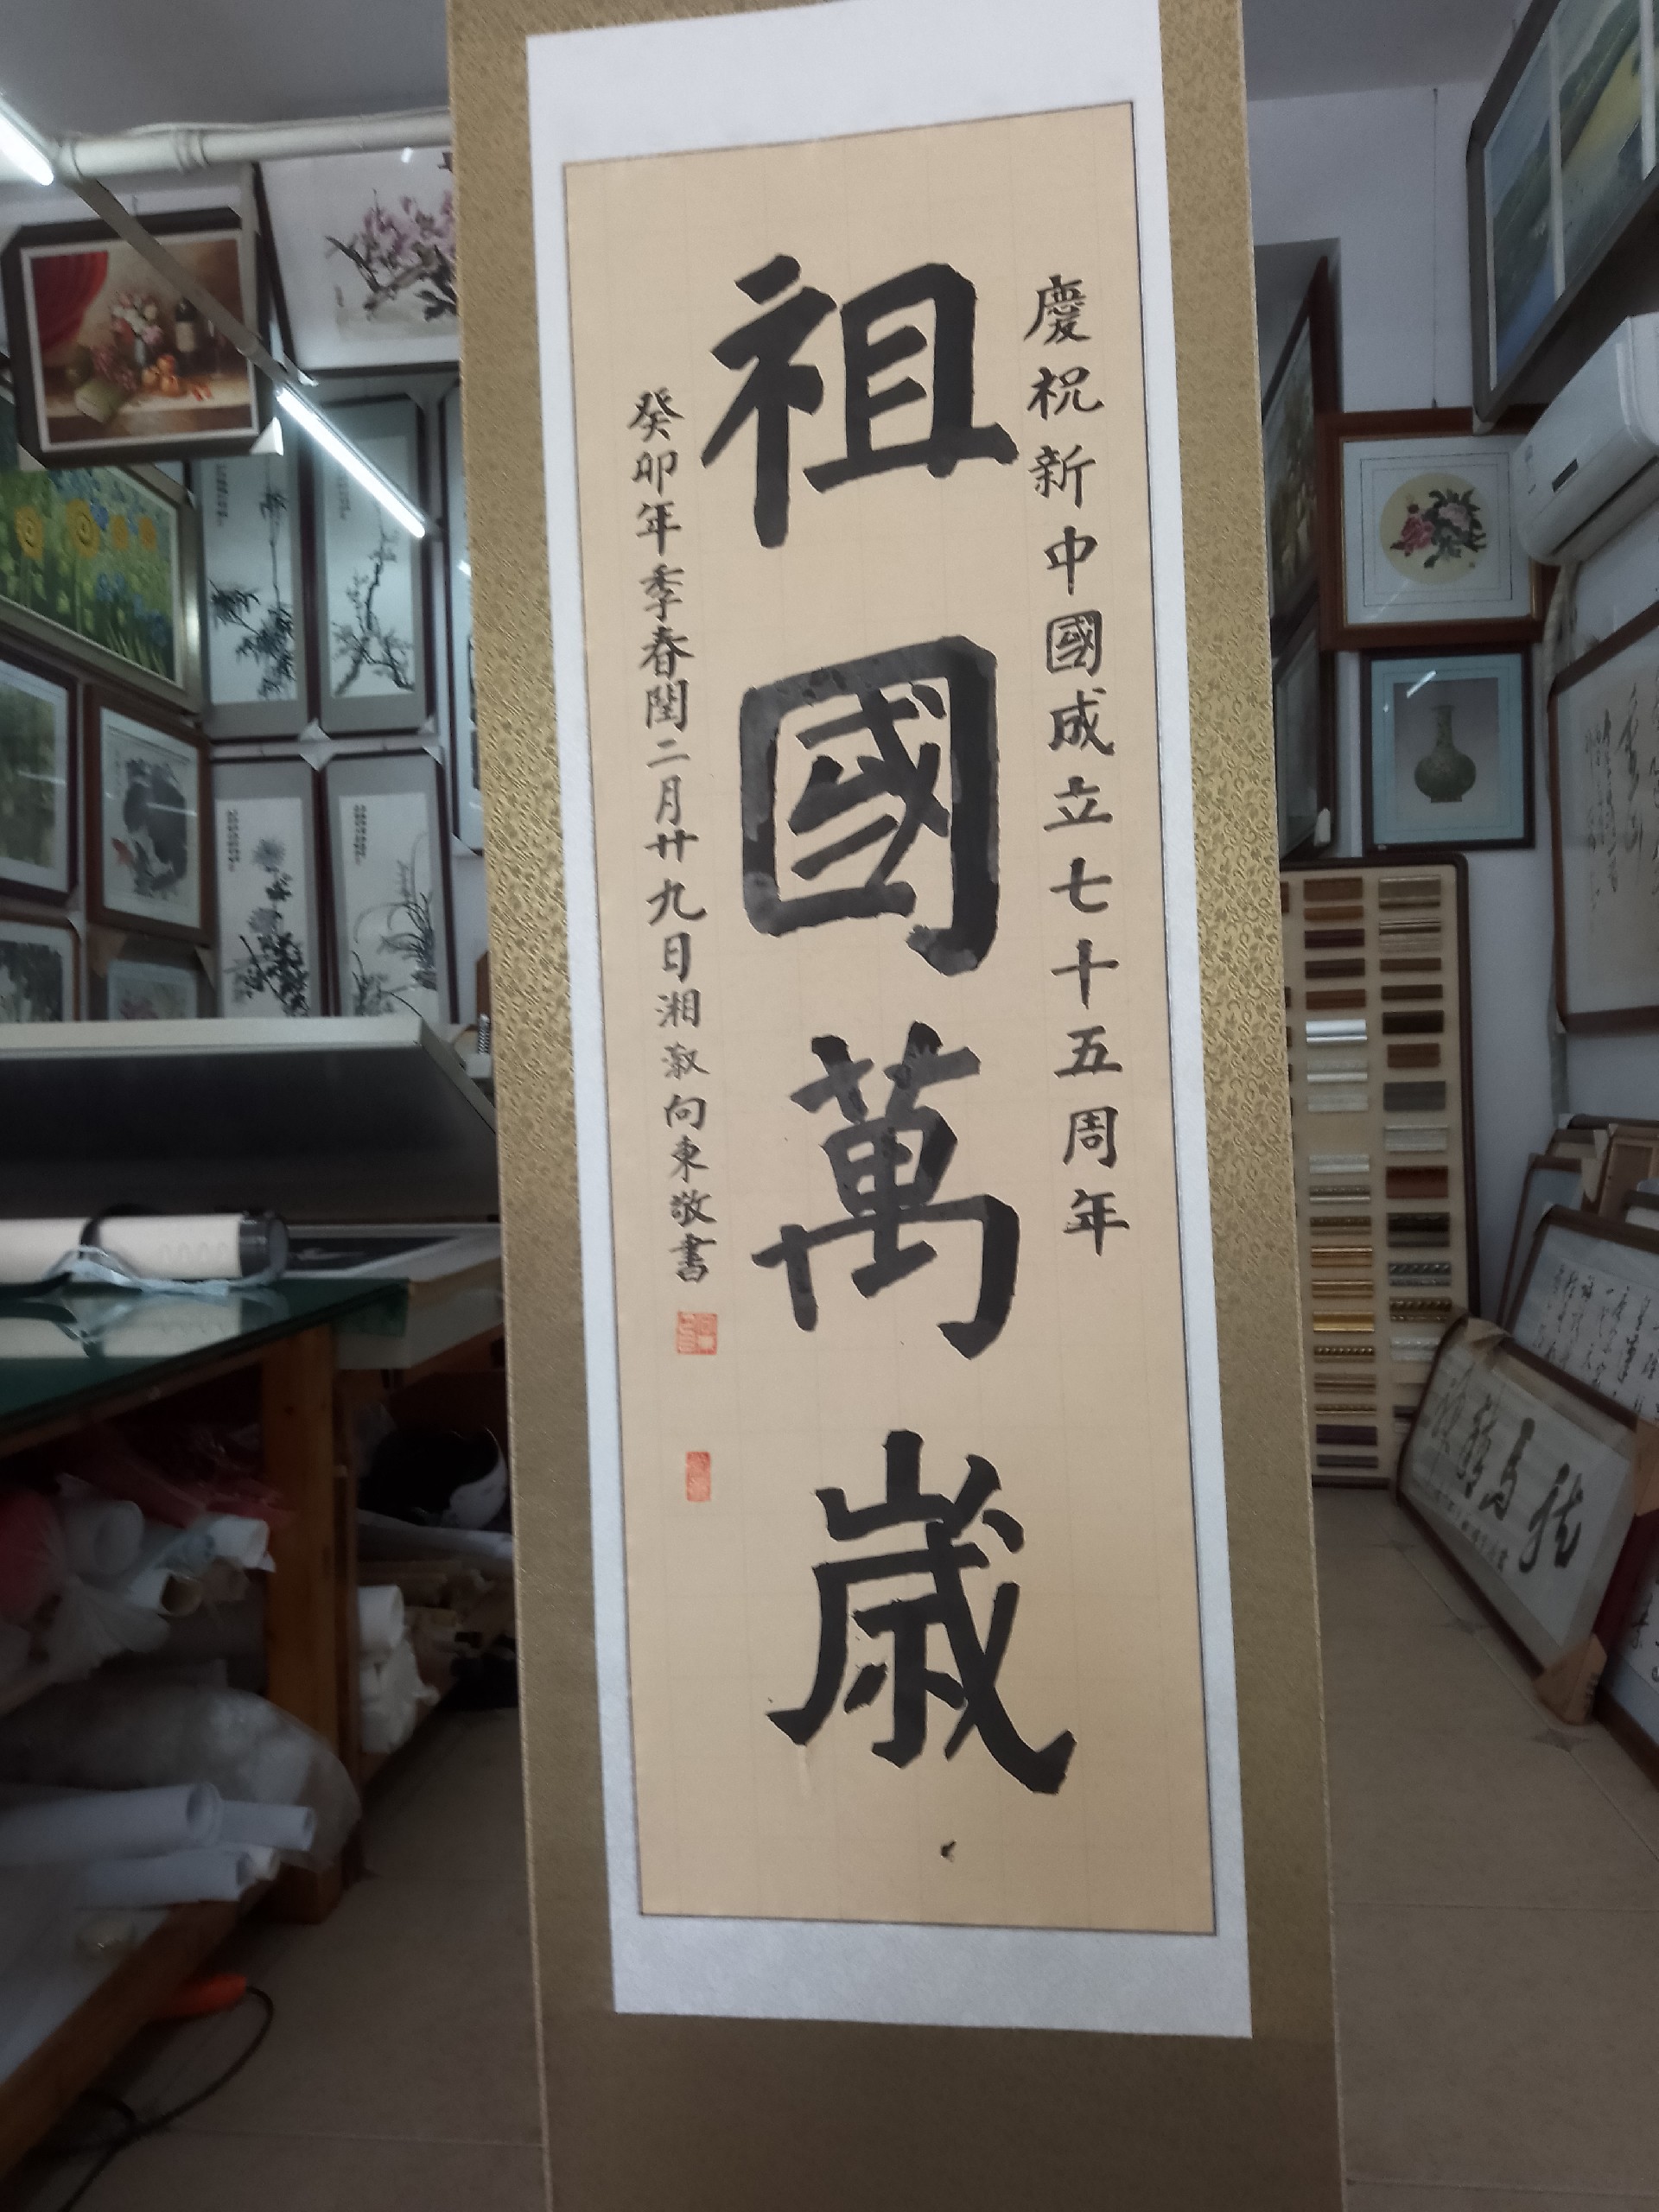 慶祝新中國成立七十五周年
祖國萬歲
癸卯年季春閏二月廿九日湘溆向東敬書